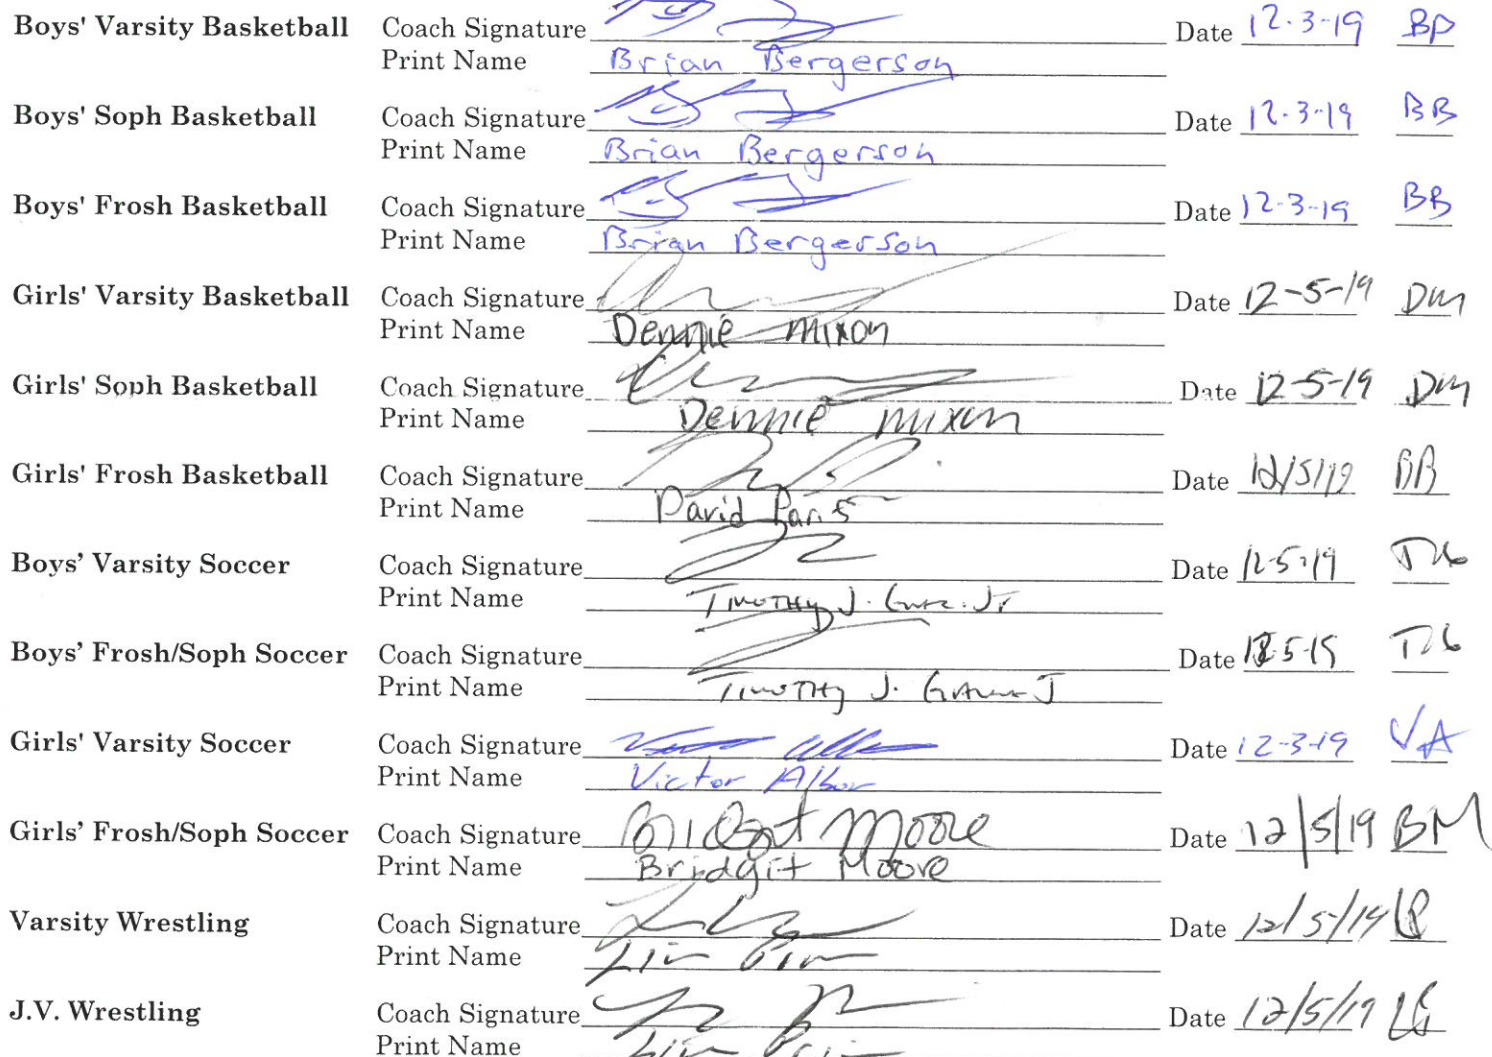 Boys' Varsity Basketball Coach Signature Date 12-3-19 BB
Print Name Brian Bergerson
Boys' Soph Basketball Coach Signature Date 12-3-19 BB
Print Name Brian Bergerson
Boys' Frosh Basketball Coach Signature Date 12-3-19 BB
Print Name Brian Bergerson
Girls' Varsity Basketball Coach Signature Date 12-5-19 DM
Print Name Dennie Mixon
Girls' Soph Basketball Coach Signature Date 12-5-19 DM
Print Name Dennie Mixon
Girls' Frosh Basketball Coach Signature Date 12/5/19 BB
Print Name David
Boys’ Varsity Soccer Coach Signature Date 12-5-19
Print Name Timothy J.
Boys’ Frosh/Soph Soccer Coach Signature Date
Print Name Timothy J.
Girls' Varsity Soccer Coach Signature Date 12-3-19 VA
Print Name Victor
Girls’ Frosh/Soph Soccer Coach Signature Bridgit Moore Date 12/5/19 BM
Print Name Bridgit Moore
Varsity Wrestling Coach Signature Date 12/5/19
Print Name
J.V. Wrestling Coach Signature Date 12/5/19
Print Name